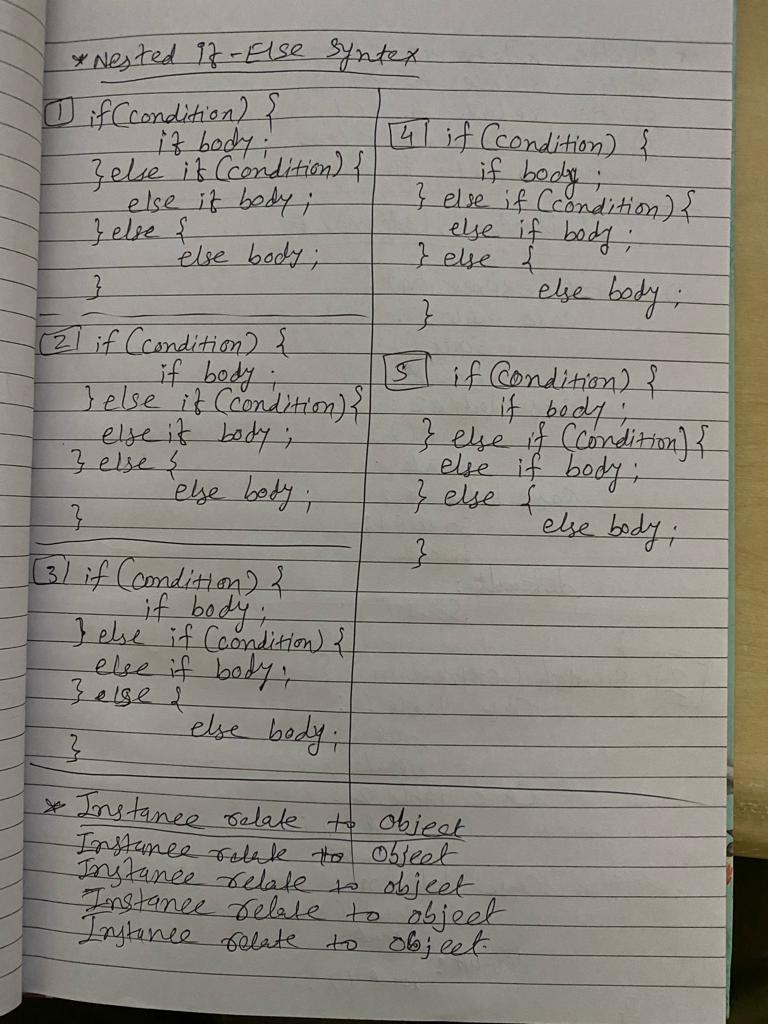 * Nested If-Else Syntex
1 if (condition) {
if body;
} else if (condition) {
else if body;
} else {
else body;
}
2 if (condition) {
if body;
} else if (condition) {
else if body;
} else {
else body;
}
3 if (condition) {
if body;
} else if (condition) {
else if body;
} else {
else body;
}
4 if (condition) {
if body;
} else if (condition) {
else if body;
} else {
else body;
}
5 if (condition) {
if body;
} else if (condition) {
else if body;
} else {
else body;
}
* Instance relate to object
Instance relate to object
Instance relate to object
Instance relate to object
Instance relate to object.